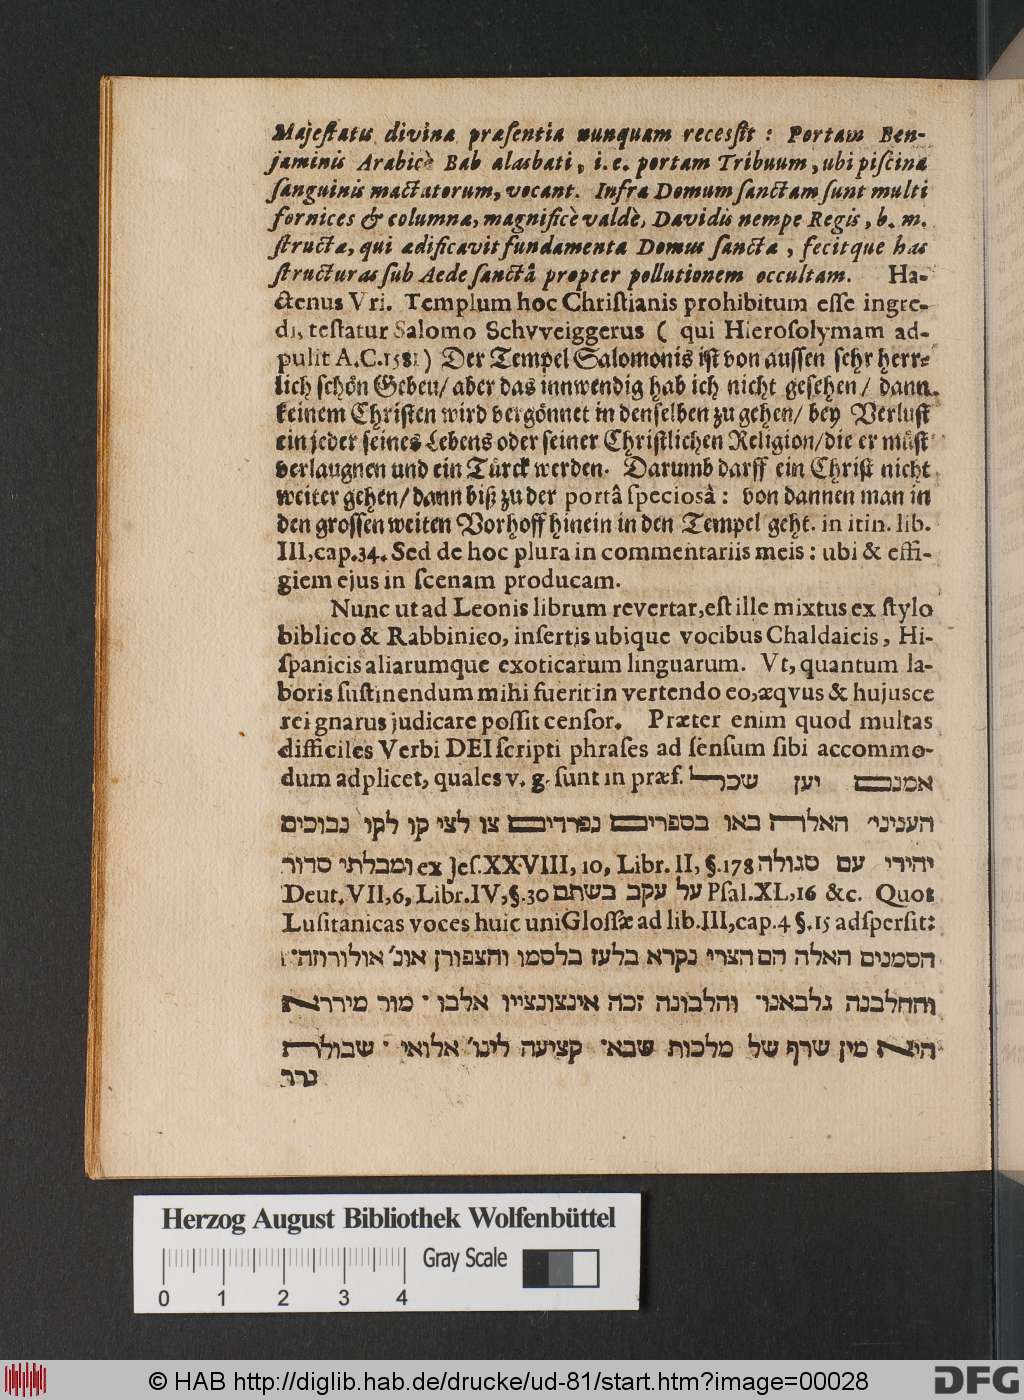 Majeſtatis divina præſentia nunquam recesſit : Portam Ben-
jaminis Arabicè Bab alasbati, i.e. portam Tribuum, ubi piſcina
ſanguinis mactatorum, vocant. Infra Domum ſanctam ſunt multi
fornices & columnæ, magnificè valdè, Davidis nempe Regis, b. m.
ſtructæ, qui ædificavit fundamenta Domus ſanctæ, fecitque has
ſtructuras ſub Aede ſanctâ propter pollutionem occultam. Ha-
ctenus Vri. Templum hoc Chriſtianis prohibitum eſſe ingre-
di, teſtatur Salomo Schvveiggerus ( qui Hieroſolymam ad-
pulit A.C.1581) Der Tempel Salomonis iſt von auſſen ſehr herr-
lich ſchön Gebeu/ aber das innwendig hab ich nicht geſehen/ dann
keinem Chriſten wird vergönnet in denſelben zu gehen/ bey Verluſt
ein jeder ſeines Lebens oder ſeiner Chriſtlichen Religion/die er müſt
verlaugnen und ein Türck werden. Darumb darff ein Chriſt nicht
weiter gehen/ dann biß zu der portâ ſpeciosâ : von dannen man in
den groſſen weiten Vorhoff hinein in den Tempel geht. in itin. lib.
III, cap.34. Sed de hoc plura in commentariis meis : ubi & effi-
giem ejus in ſcenam producam.
Nunc ut ad Leonis librum revertar, eſt ille mixtus ex ſtylo
biblico & Rabbinico, inſertis ubique vocibus Chaldaicis, Hi-
ſpanicis aliarumque exoticarum linguarum. Vt, quantum la-
boris ſuſtinendum mihi fuerit in vertendo eo, æqvus & hujusce
rei gnarus judicare poſſit cenſor. Præter enim quod multas
difficiles Verbi DEI ſcripti phraſes ad ſenſum ſibi accommo-
dum adplicet, quales v. g. ſunt in præf. אמנם יען שכל
העניני׳ האלה באו בספרים נפרדים צו לצי קו לקו נבוכים
ומבלתי סדור ex Jeſ.XXVIII, 10, Libr. II, §.178 יהידי עם סגולה
Deut. VII,6, Libr.IV,§.30 על עקב בשתם Pſal.XL,16 &c. Quot
Luſitanicas voces huic uni Gloſſæ ad lib.III,cap.4 §.15 adſperſit:
הסמנים האלה הם הצרי נקרא בלעז בלסמו והצפורן אונ׳ אולורוזה־
והחלבנה גלבאנו־ והלבונה זכה אינצונצייו אלבו ־ מור מיררא
היא מין שרף של מלכות שבא־ קציעה לינו׳ אלואי ־ שבולת
נרד
Herzog August Bibliothek Wolfenbüttel
Gray Scale
0 1 2 3 4
© HAB http://diglib.hab.de/drucke/ud-81/start.htm?image=00028
DFG